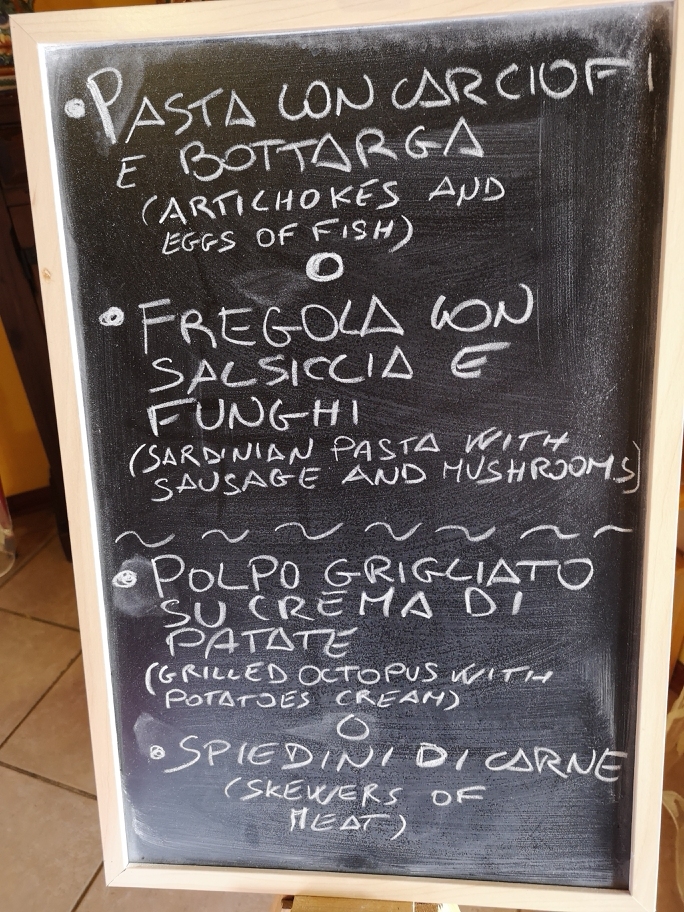 • PASTA CON CARCIOFI
E BOTTARGA
(ARTICHOKES AND
EGGS OF FISH)
O
• FREGOLA CON
SALSICCIA E
FUNGHI
(SARDINIAN PASTA WITH
SAUSAGE AND MUSHROOMS)
~ ~ ~ ~ ~ ~ ~
• POLPO GRIGLIATO
SU CREMA DI
PATATE
(GRILLED OCTOPUS WITH
POTATOES CREAM)
O
• SPIEDINI DI CARNE
(SKEWERS OF
MEAT)